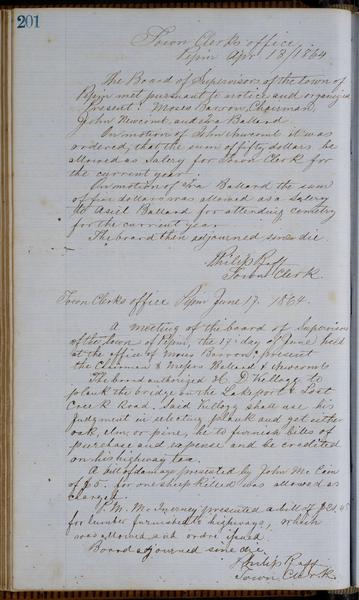 201
Town Clerks office
Pepin Apr 18/1864
The Board of Supervisors of the town of
Pepin met pursuant to notice and organized
Present Moses Barron, Chairman,
John Newcomb and Asa Ballard.
On motion of John Newcomb it was
ordered, that the sum of fifty dollars be
allowed as Salery for Town Clerk for
the current year.
On motion of Asa Ballard the sum
of five dollars was allowed as a salery
to Asiel Ballard for attending cemetry
for the current year
The board then adjourned sine die
Philip Raff
Town Clerk
Town Clerks office Pepin June 17. 1864.
A meeting of the board of Supervisors
of the town of Pepin, the 17th day of June held
at the office of Moses Barron: present
the Chairman & Messers Ballard & Newcomb
The board authorized H. D. Kellogg to
plank the bridge on the Lakeport & Lost
Creek Road. Said Kellogg shall use his
judgment in selecting plank and get either
oak, elm, or pine, he to furnish bills of
purchase and expense and be credited
on his highway tax.
A bill of damage presented by John Mc Cain
of $5. for one sheep killed was allowed as
charged.
P. M. Mc Inerney presented a bill of
for lumber furnished highways, which
was allowed and order issued.
Board adjourned sine die.
Philip Raff
Town Clerk.